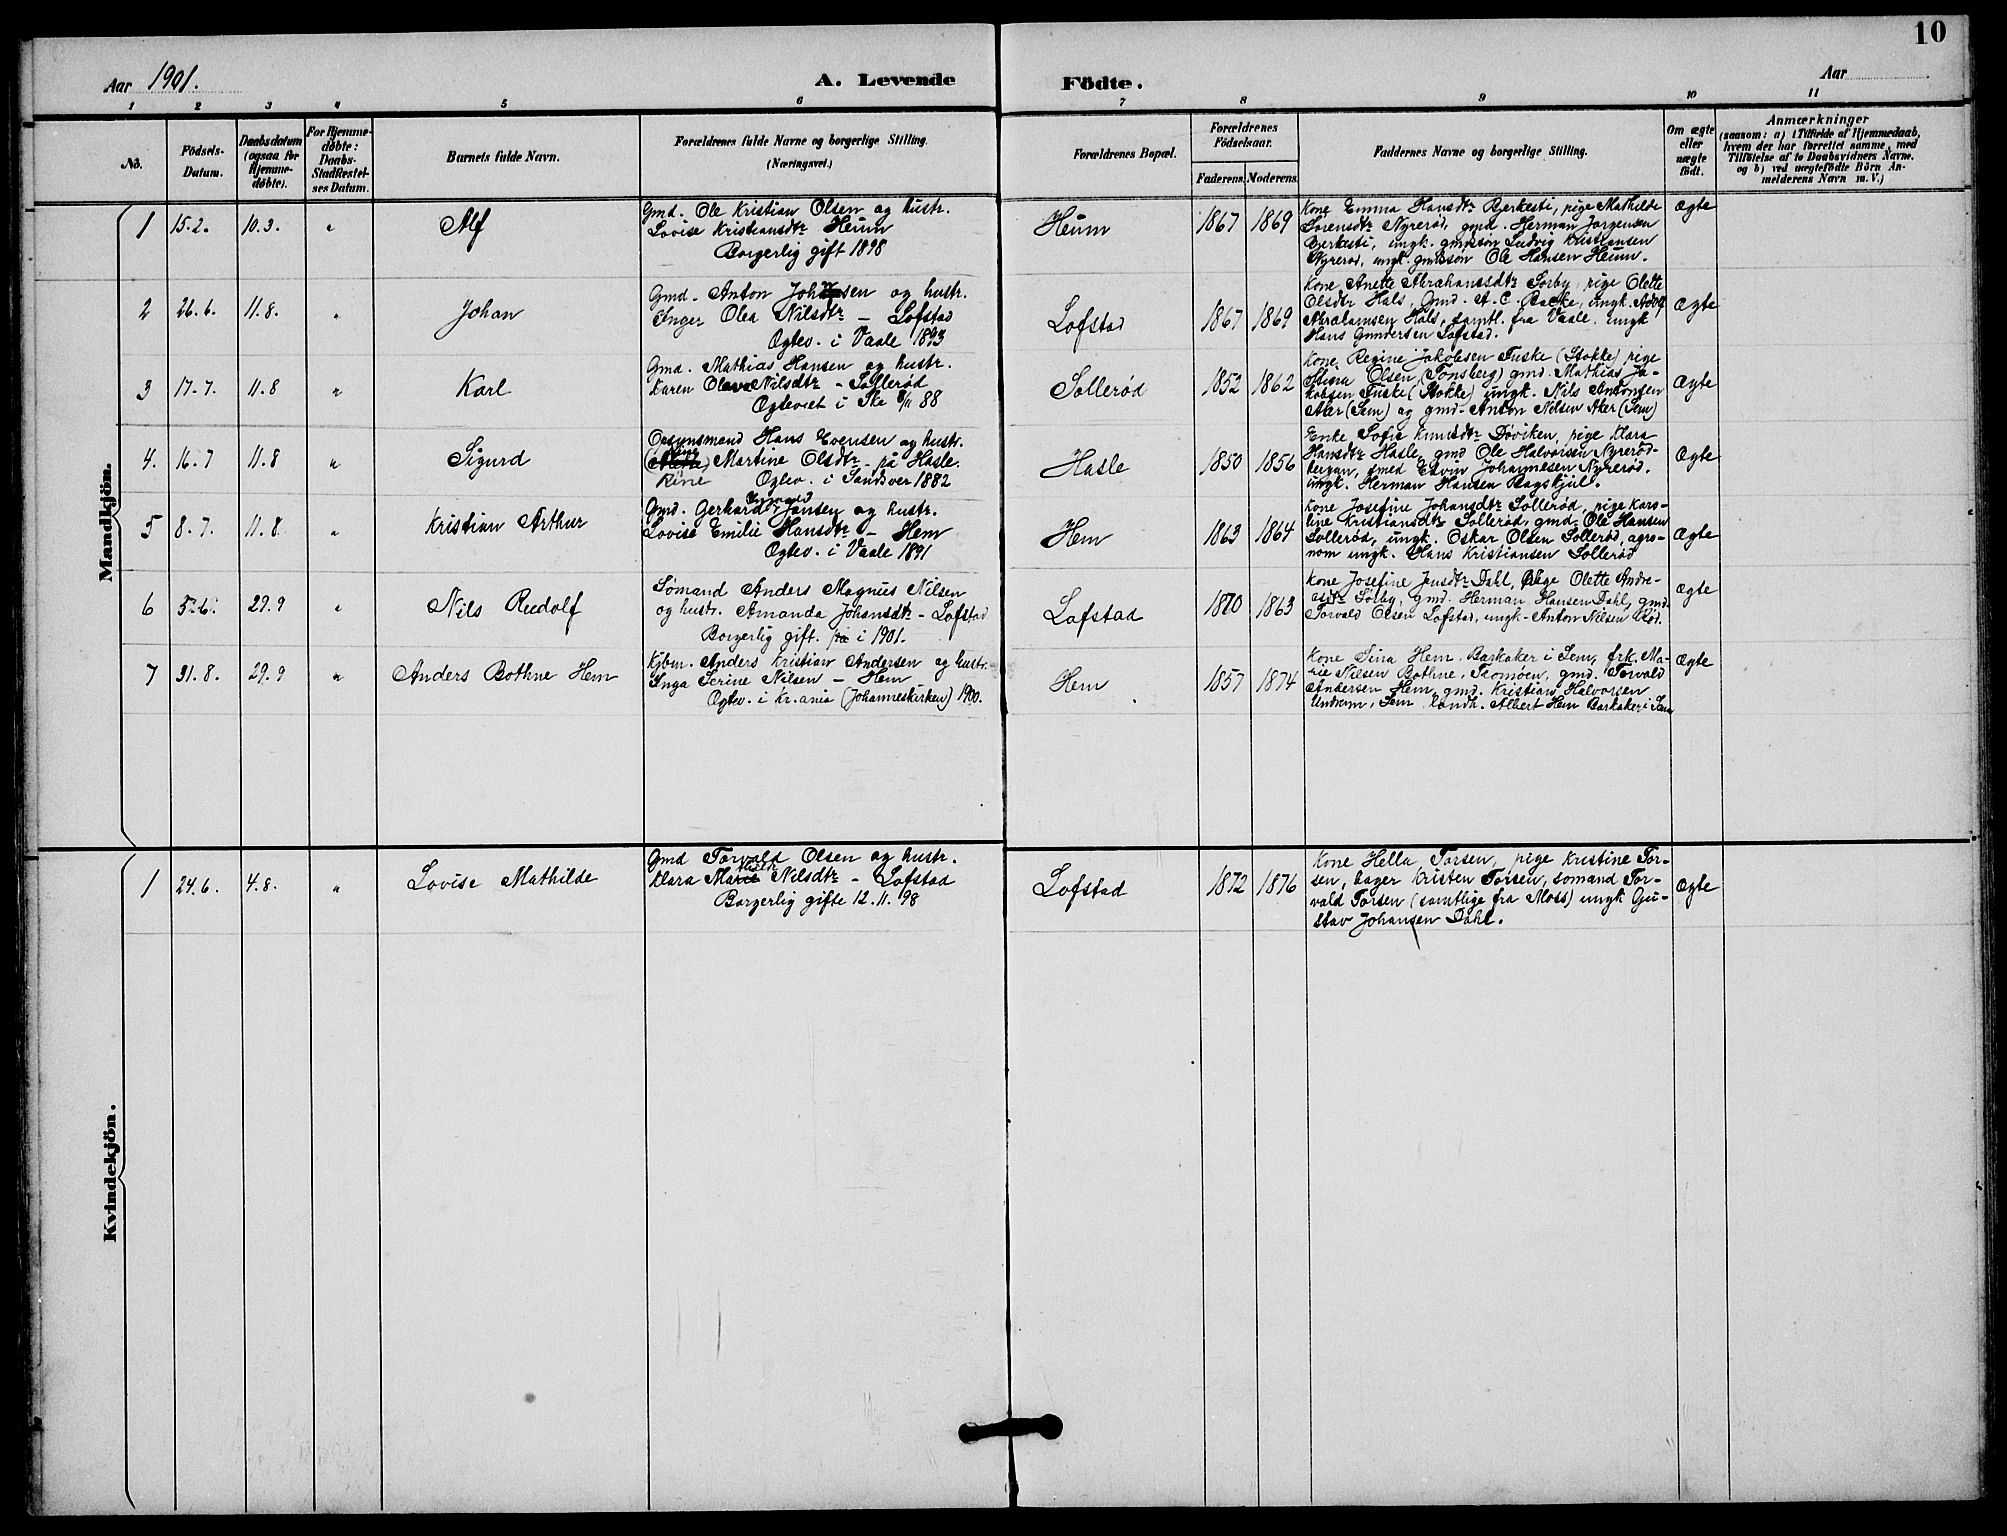 10
Aar 1901.
A. Levende
Födte.
Aar
1 2 3 4 5 6 7 8 9 10 11
No.
Födsels-
Datum.
Daabsdatum
(ogsaa for
Hjemme-
døbte).
For Hjemme-
døbte:
Daabs-
Stadfæstel-
ses Datum.
Barnets fulde Navn.
Forældrenes fulde Navne og borgerlige Stilling.
(Næringsvei.)
Forældrenes Bopæl.
Forældrenes
Födselsaar.
Faderens. Moderens.
Faddernes Navne og borgerlige Stilling.
Om ægte
eller
uægte
født.
Anmærkninger
(saasom: a) i Tilfælde af Hjemmedaab,
hvem der har forrettet samme, med
Tilföielse af to Daabsvidners Navne.
og b) ved uægtefödte Börn An-
melderens Navn m. V.)
Mandkjön.
1 15.2. 10.3. " Alf
Gmd. Ole Kristian Olsen og hustr.
Lovise Kristiansdtr Heum
Borgerlig gift 1898
Heum 1867 1869
Kone Emma Hansdtr Bjerkesti, pige Mathilde
Sørensdtr Nyrerød, gmd. Herman Jørgensen
Bjerkesti, ungk. gmdssøn Ludvig Kristiansen
Nyrerød, ungk. gmdssøn Ole Hansen Heum.
Ægte
2 26.6. 11.8. " Johan
Gmd. Anton Johansen og hustr.
Inger Olea Nilsdtr – Lofstad
Ægtev. i Vaale 1893
Lofstad 1867 1869
Kone Anette Abrahamsdtr Sørby, pige Olette
Olsdtr Hals, Gmd. A. C. Bakke, ungk. Adolf
Abrahamsen Hals, samtl. fra Vaale, ungk
Hans Gundersen Lofstad.
Ægte
3 17.7. 11.8 " Karl
Gmd. Mathias Hansen og hustr.
Karen Olava Nilsdtr – Sollerød
Ægteviet i Ske 88
Sollerød 1852 1862
Kone Regine Jakobsen Fuske (Stokke) pige
Olsen (Tønsberg) gmd. Mathias Ja-
kobsen Fuske (Stokke) ungk. Nils Antonsen
Aker (Sem) og gmd. Anton Nilsen Aker (Sem)
Ægte
4. 16.7 11.8 " Sigurd
Opsynsmand Hans Evensen og hustr.
Martine Olsdtr på Hasle.
Ægtev. i Sandsver 1882
Hasle 1850 1856
Enke Sofie Knudsdtr Døviken, pige Klara
Hansdtr Hasle, gmd Ole Halvorsen Nyrerød-
bergan, smed Edvin Johannesen Nyrerød.
ungk. Herman Hansen Bagskjul.
Ægte
5 8.7. 11.8 " Kristian Arthur
Gmd. Gerhard Jansen og hustr.
Lovise Emilie Hansdtr – Hem
Ægtev. i Vaale 1891
Hem 1863 1864
Kone Josefine Johansdtr Sollerød, pige Karo-
line Kristiansdtr Sollerød, gmd. Ole Hansen
Sollerød, ungk. Oskar Olsen Sollerød, agro-
nom ungk. Hans Kristiansen Sollerød
Ægte
6 5.6. 29.9 " Nils Rudolf
Sømand Anders Magnus Nilsen
og hustr. Amanda Johansdtr – Lofstad
Borgerlig gift. på i 1901.
Lofstad 1870 1863
Kone Josefine Jensdtr Dahl, pige Olette Andre-
asdtr Sørby, gmd. Herman Hansen Dahl, gmd.
Torvald Olsen Lofstad, ungk. Anton Nilsen Rød.
Ægte
7 31.8. 29.9 " Anders Bothne Hem
Kjbm. Anders Kristian Andersen og hustr.
Inga Serine Nilsen – Hem
Ægtev. i Kr.ania (Johanneskirken) 1900.
Hem 1857 1874
Kone Sina Hem, Barkaker i Sem, frk. Ma-
rie Nilsen Bothne, Tromøen, gmd. Torvald
Andersen Hem, gmd. Kristian Halvorsen
Undrum, Sem, landh. Albert Hem Barkaker i Sem
Ægte
Kvindekjön.
1 24.6. 4.8. " Lovise Mathilde
Gmd Torvald Olsen og hustr.
Klara Marie Nilsdtr – Lofstad
Borgerlig gifte 12.11.98
Lofstad 1872 1876
Kone Hella Torsen, pige Kristine Tor-
sen, bager Kristen Torsen, sømand Tor-
vald Torsen (samtlige fra Moss) ungk Gu-
stav Johansen Dahl.
Ægte